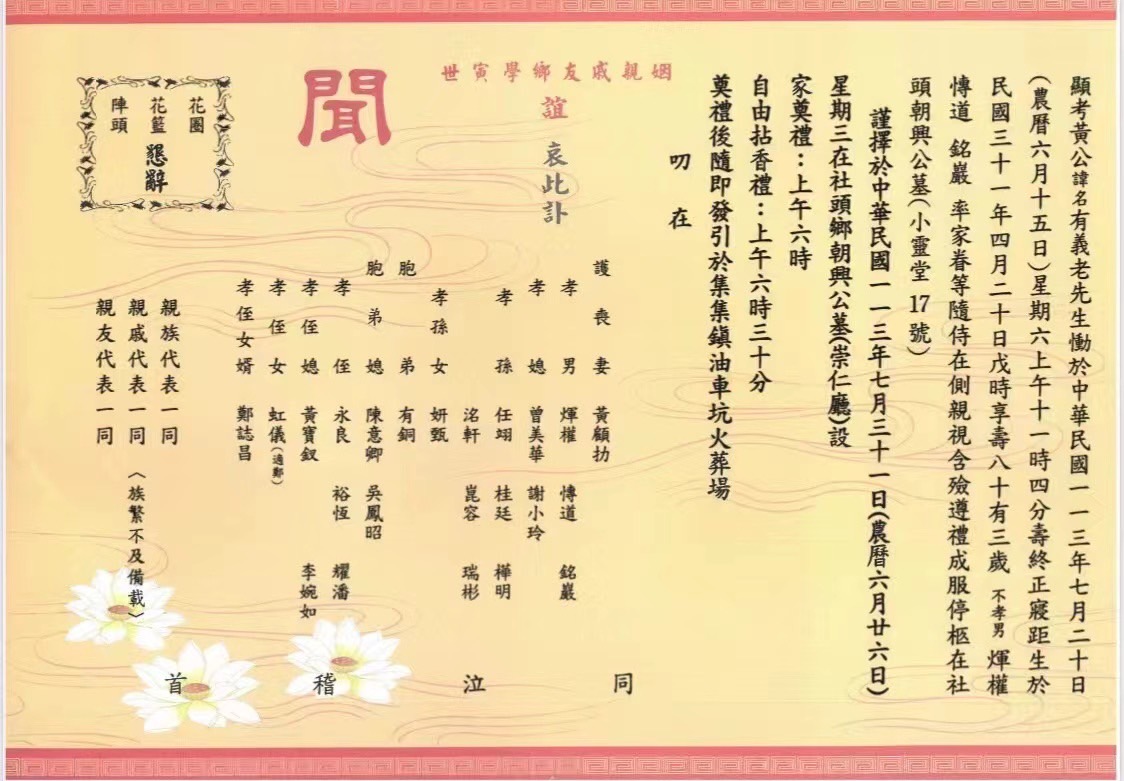 顯考黃公諱名有義老先生慟於中華民國一一三年七月二十日
(農曆六月十五日)星期六上午十一時四分壽終正寢距生於
民國三十一年四月二十日戌時享壽八十有三歲 不孝男 煇權
傳道 銘巖 率家眷等隨侍在側親視含殮遵禮成服停柩在社
頭朝興公墓(小靈堂 17 號)
謹擇於中華民國一一三年七月三十一日(農曆六月廿六日)
星期三在社頭鄉朝興公墓(崇仁廳)設
家奠禮：上午六時
自由拈香禮：上午六時三十分
奠禮後隨即發引於集集鎮油車坑火葬場
叨在
姻親戚友鄉學寅世
誼
哀此訃
聞
護喪妻 黃顧扐
孝男 煇權 傳道 銘巖
孝媳 曾美華 謝小玲
孝孫 任翊 桂廷 樺明
洺軒 崑容 瑞彬
孝孫女 妍甄
胞弟 有銅
胞弟媳 陳意卿 吳鳳昭
孝侄 永良 裕恆 耀潘
孝侄媳 黃寶釵 李婉如
孝侄女 虹儀(適鄭)
孝侄女婿 鄭誌昌
親族代表一同
親戚代表一同 〈族繁不及備載〉
親友代表一同
同泣稽首
花圈
花籃 懇辭
陣頭